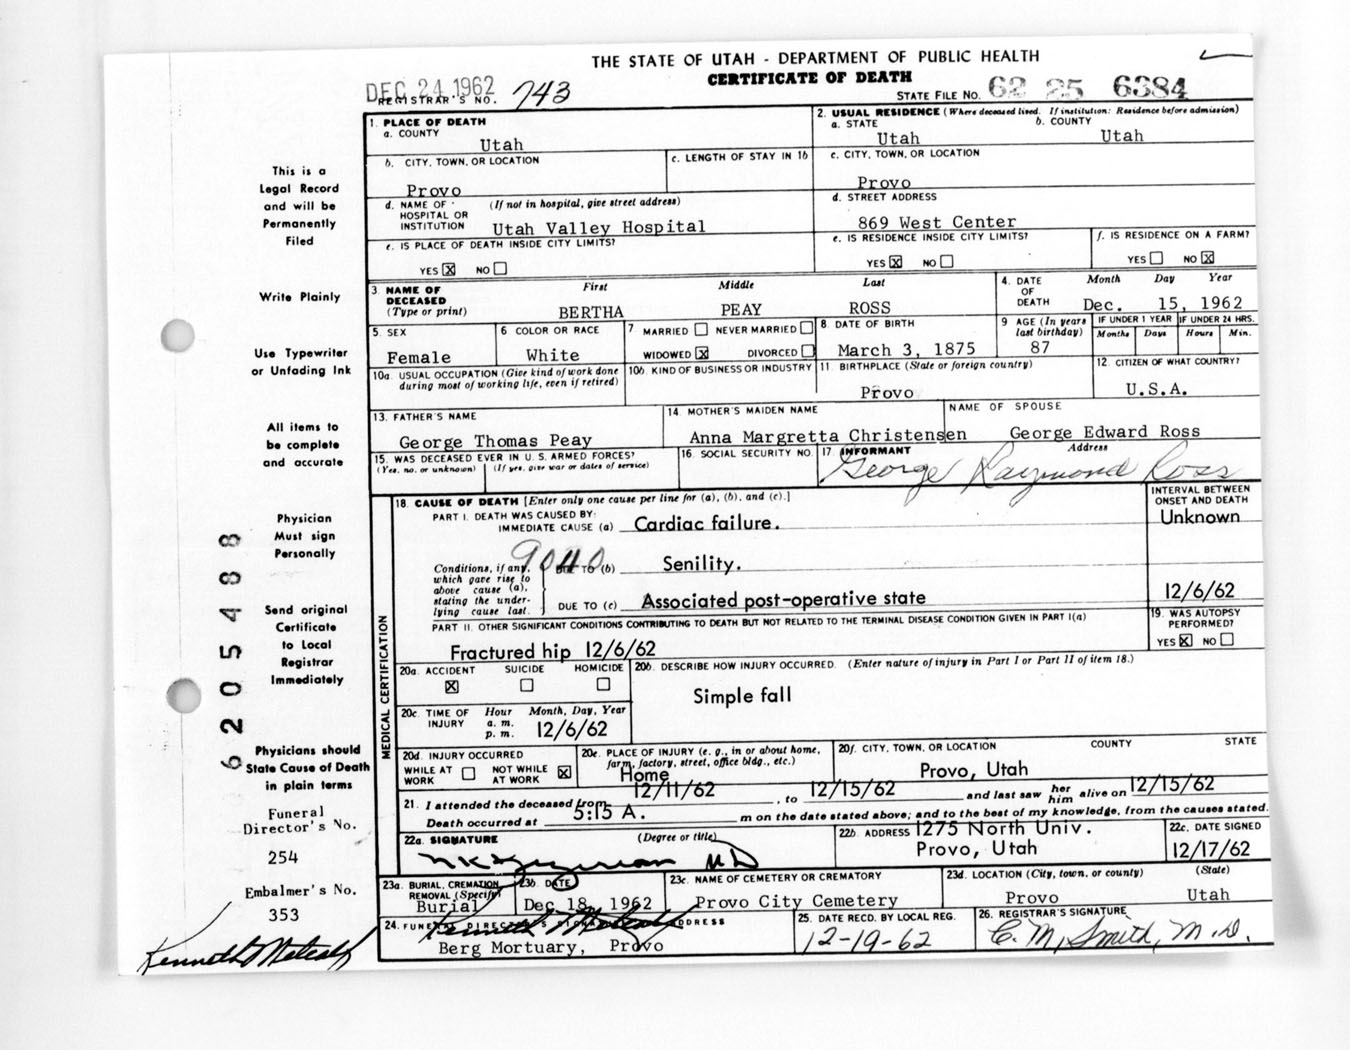 THE STATE OF UTAH - DEPARTMENT OF PUBLIC HEALTH
CERTIFICATE OF DEATH
DEC 24 1962
REGISTRAR'S NO. 743
STATE FILE NO. 62 25 6384
1. PLACE OF DEATH
a. COUNTY
Utah
2. USUAL RESIDENCE (Where deceased lived. If institution: Residence before admission)
a. STATE b. COUNTY
Utah Utah
b. CITY, TOWN, OR LOCATION
Provo
c. LENGTH OF STAY IN 1b
c. CITY, TOWN, OR LOCATION
Provo
d. NAME OF HOSPITAL OR INSTITUTION (If not in hospital, give street address)
Utah Valley Hospital
d. STREET ADDRESS
869 West Center
e. IS PLACE OF DEATH INSIDE CITY LIMITS?
YES X NO
e. IS RESIDENCE INSIDE CITY LIMITS?
YES X NO
f. IS RESIDENCE ON A FARM?
YES NO X
3. NAME OF DECEASED (Type or print)
First Middle Last
BERTHA PEAY ROSS
4. DATE OF DEATH
Month Day Year
Dec. 15, 1962
5. SEX
Female
6 COLOR OR RACE
White
7 MARRIED NEVER MARRIED
WIDOWED X DIVORCED
8. DATE OF BIRTH
March 3, 1875
9 AGE (In years last birthday)
87
IF UNDER 1 YEAR
Months Days
IF UNDER 24 HRS.
Hours Min.
10a. USUAL OCCUPATION (Give kind of work done during most of working life, even if retired)
10b. KIND OF BUSINESS OR INDUSTRY
11. BIRTHPLACE (State or foreign country)
Provo
12. CITIZEN OF WHAT COUNTRY?
U.S.A.
13. FATHER'S NAME
George Thomas Peay
14. MOTHER'S MAIDEN NAME
Anna Margretta Christensen
NAME OF SPOUSE
George Edward Ross
15. WAS DECEASED EVER IN U. S. ARMED FORCES?
(Yes, no, or unknown) (If yes, give war or dates of service)
16. SOCIAL SECURITY NO.
17. INFORMANT Address
George Raymond Ross
18. CAUSE OF DEATH [Enter only one cause per line for (a), (b), and (c).]
INTERVAL BETWEEN ONSET AND DEATH
PART I. DEATH WAS CAUSED BY:
IMMEDIATE CAUSE (a) Cardiac failure.
Unknown
9040
Conditions, if any, which gave rise to above cause (a), stating the underlying cause last.
DUE TO (b) Senility.
DUE TO (c) Associated post-operative state
12/6/62
PART II. OTHER SIGNIFICANT CONDITIONS CONTRIBUTING TO DEATH BUT NOT RELATED TO THE TERMINAL DISEASE CONDITION GIVEN IN PART I(a)
Fractured hip 12/6/62
19. WAS AUTOPSY PERFORMED?
YES X NO
MEDICAL CERTIFICATION
20a. ACCIDENT SUICIDE HOMICIDE
X
20b. DESCRIBE HOW INJURY OCCURRED. (Enter nature of injury in Part I or Part II of item 18.)
Simple fall
20c. TIME OF INJURY
Hour Month, Day, Year
a. m.
p. m. 12/6/62
20d. INJURY OCCURRED
WHILE AT WORK NOT WHILE AT WORK X
20e. PLACE OF INJURY (e. g., in or about home, farm, factory, street, office bldg., etc.)
Home
20f. CITY, TOWN, OR LOCATION COUNTY STATE
Provo, Utah
21. I attended the deceased from 12/11/62, to 12/15/62 and last saw her him alive on 12/15/62
Death occurred at 5:15 A. m on the date stated above; and to the best of my knowledge, from the causes stated.
22a. SIGNATURE (Degree or title)
MD
22b. ADDRESS 1275 North Univ.
Provo, Utah
22c. DATE SIGNED
12/17/62
23a. BURIAL, CREMATION, REMOVAL (Specify)
Burial
23b. DATE
Dec 18, 1962
23c. NAME OF CEMETERY OR CREMATORY
Provo City Cemetery
23d. LOCATION (City, town, or county) (State)
Provo Utah
24. FUNERAL DIRECTOR'S SIGNATURE ADDRESS
Kenneth Metcalf
Berg Mortuary, Provo
25. DATE RECD. BY LOCAL REG.
12-19-62
26. REGISTRAR'S SIGNATURE
C. M. Smith, M.D.
This is a
Legal Record
and will be
Permanently
Filed
Write Plainly
Use Typewriter
or Unfading Ink
All items to
be complete
and accurate
Physician
Must sign
Personally
Send original
Certificate
to Local
Registrar
Immediately
Physicians should
State Cause of Death
in plain terms
Funeral
Director's No.
254
Embalmer's No.
353
Kenneth Metcalf
6205488